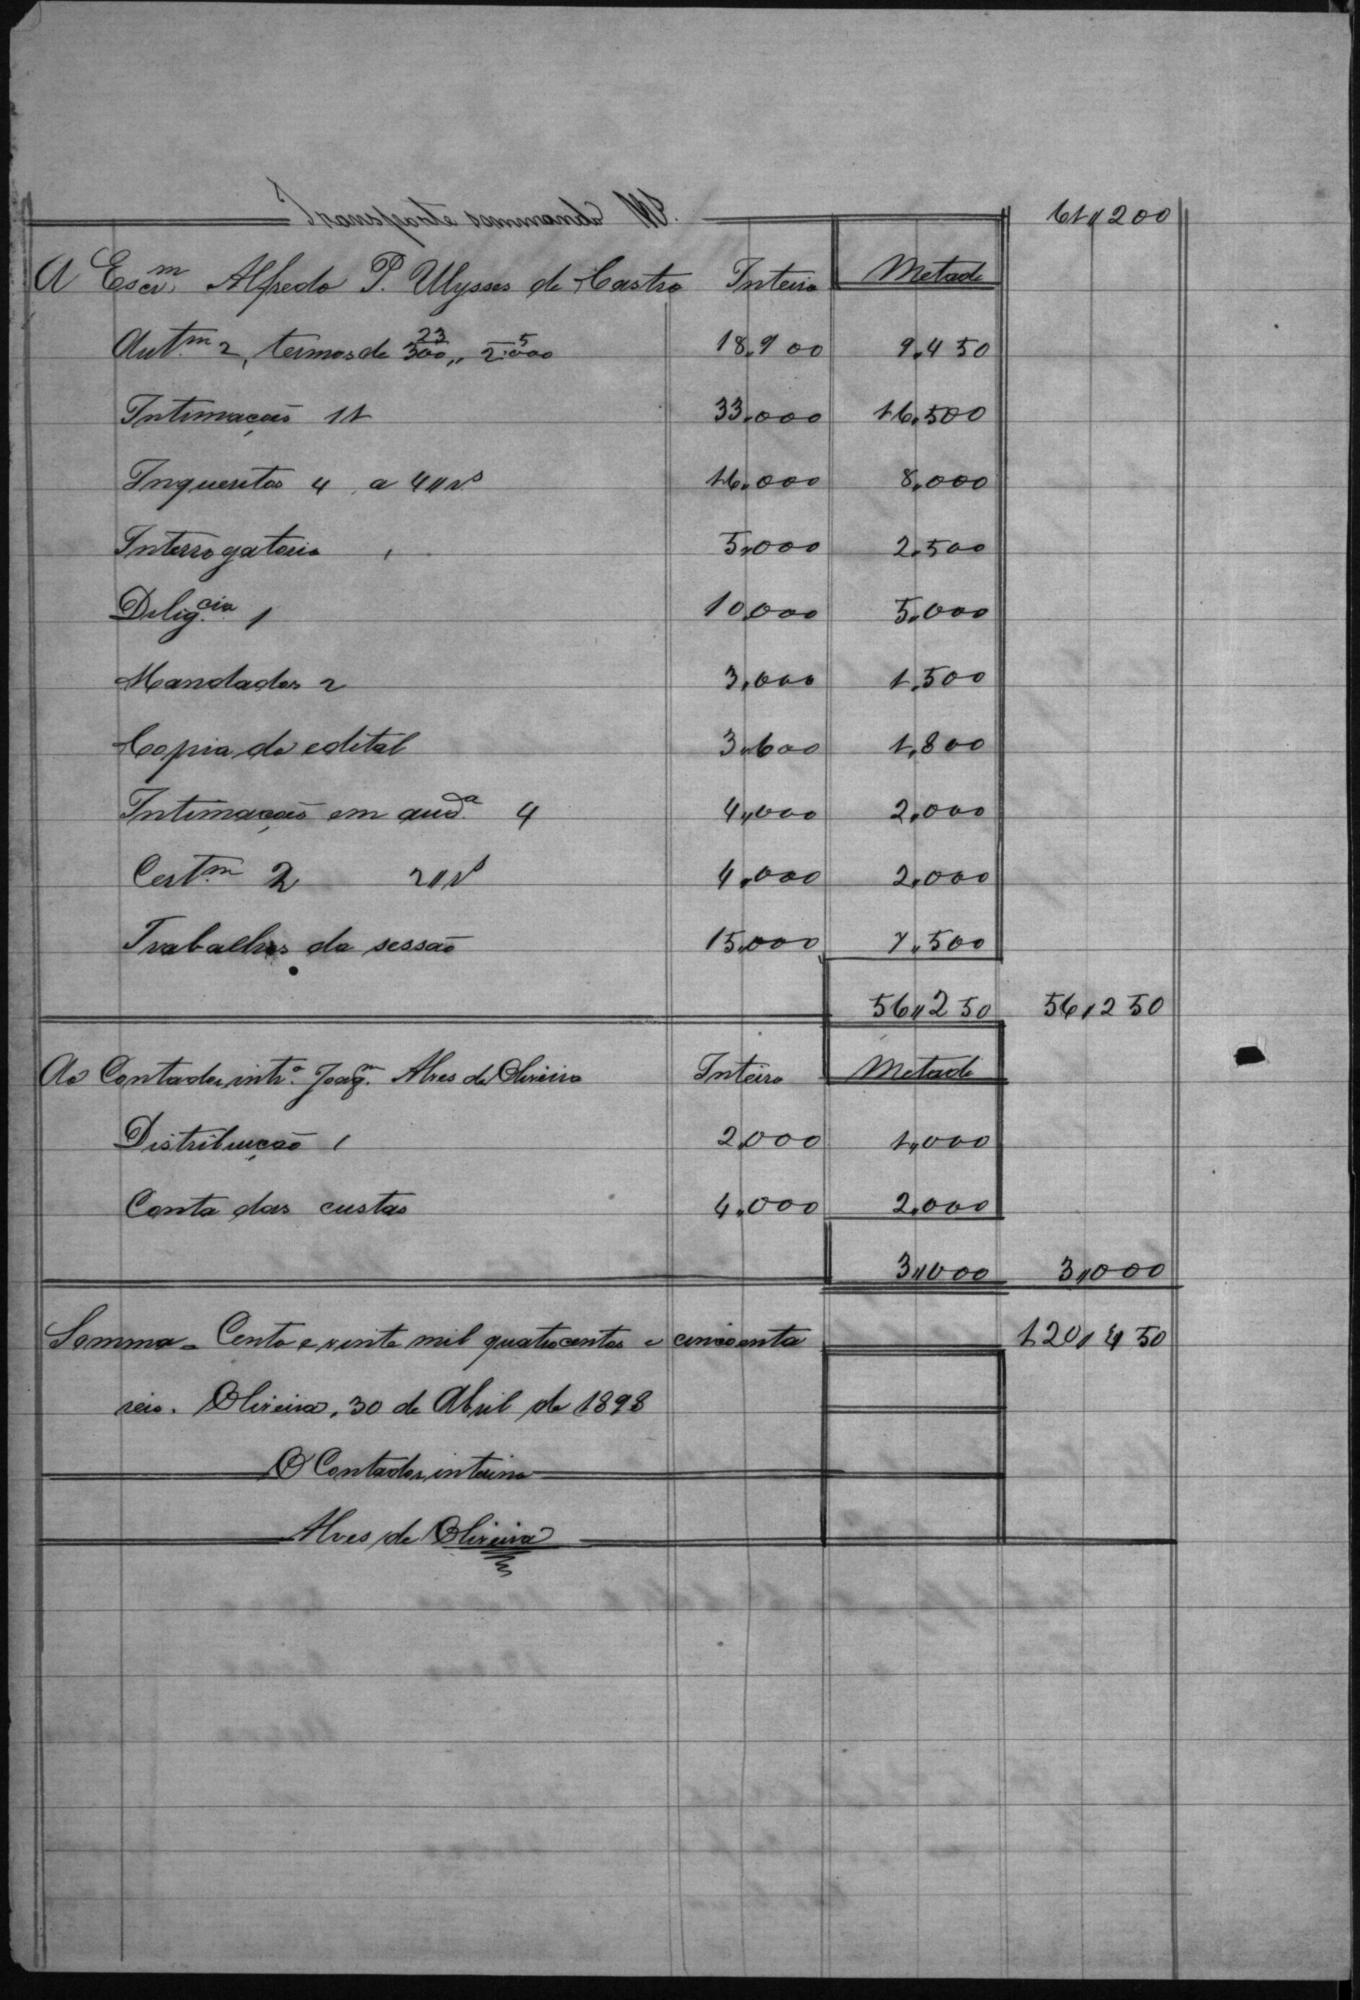 61,,200
A Escr.m Alfredo P. Ulysses de Castro Inteiro Metade
Aut.m 2, termos de 23/300,, 5/2.000 18,900 9,450
Intimação 11 33,000 16,500
Inqueritos 4 a 4,,rs 16,000 8,000
Interrogatorio 5,000 2,500
Delig.cia 1 10,000 5,000
Mandados 2 3,000 1,500
Copia de edital 3,600 1,800
Intimação em aud.a 4 4,,000 2,000
Cert.m 2 2,,rs 4,000 2,000
Trabalhos da sessão 15,000 7,500
56,,250 56,250
Ao Contador int.o Joaq.m Alves de Oliveira Inteiro Metade
Distribuição 1 2,000 1,000
Conta das custas 4,000 2,000
3,,000 3,,000
Somma - Cento e vinte mil quatrocentos e cincoenta 120,450
reis. Oliveira, 30 de Abril de 1898
O Contador interino
Alves de Oliveira